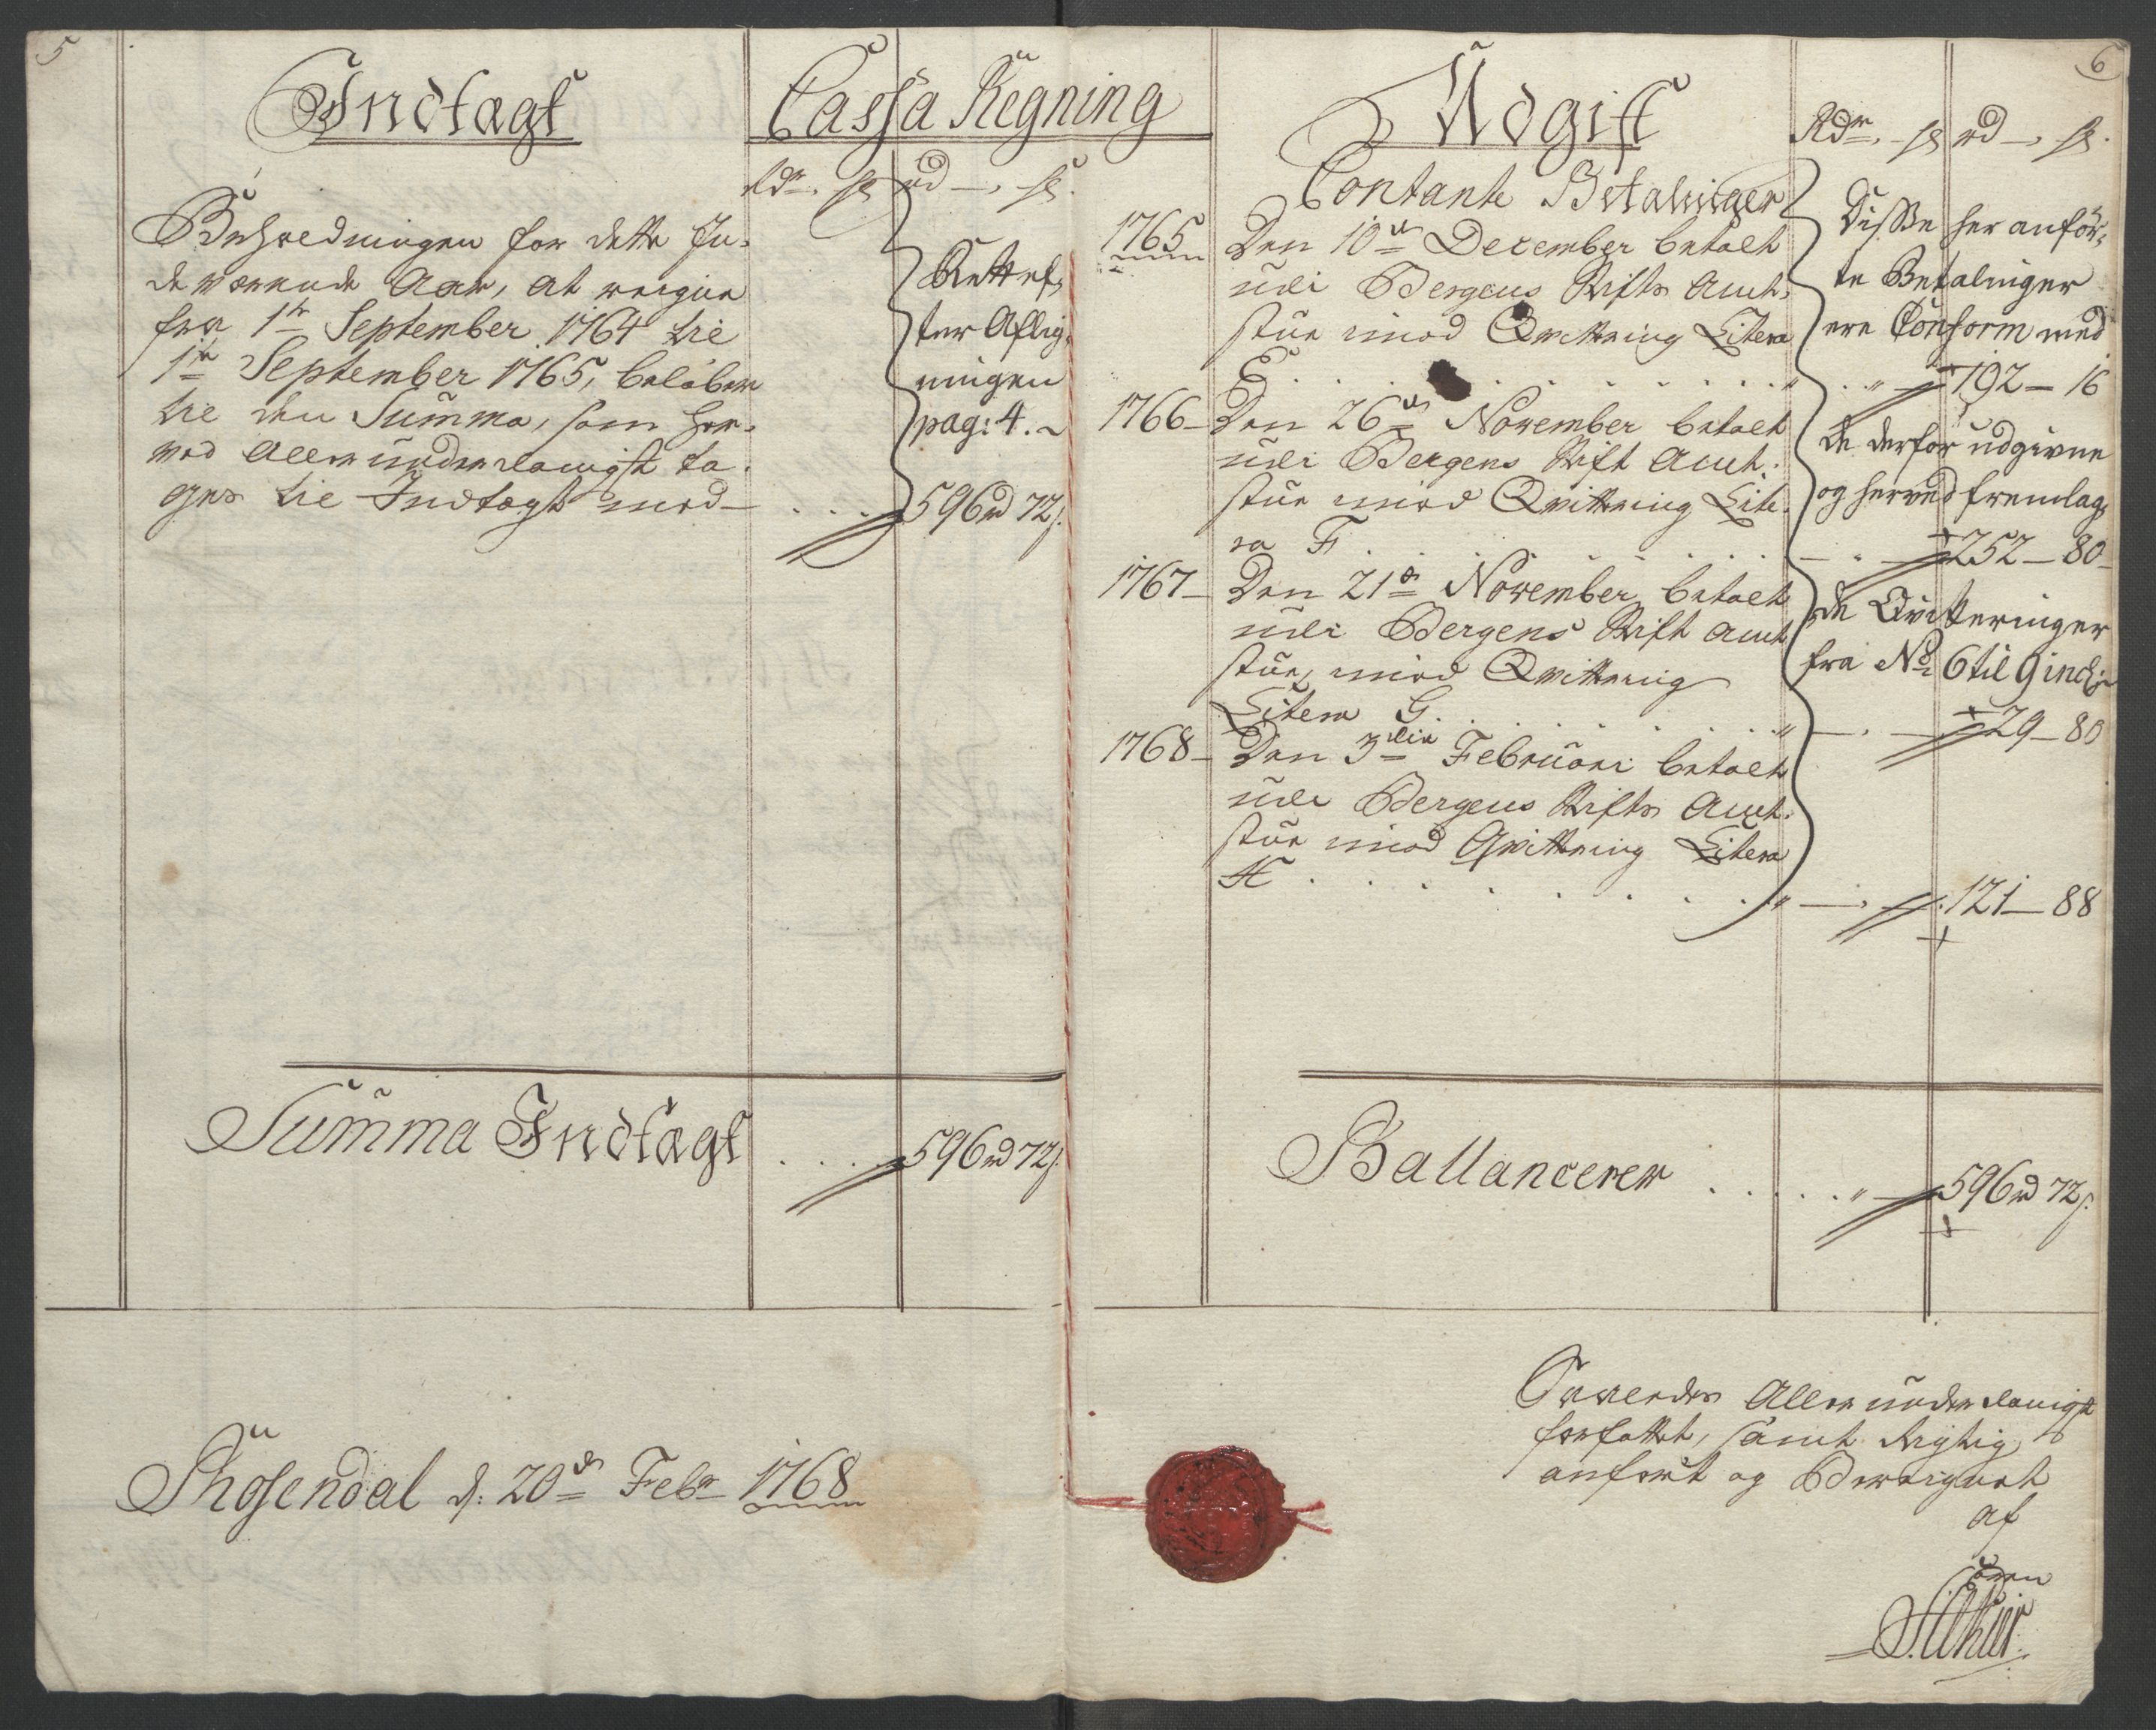 5
Indtægt
Cassa Regning
Rdr. ß rd — ß.
Beholdningen for dette In-
deværende Aar, at reigne
fra 1te September 1764 til
1te September 1765, beløber
til den Summa, som her-
ved Allerunderdanigst ta-
ges til Indtægt med — . . . 596 rd 72 ß.
Rettef-
ter Aflig-
ningen
pag: 4.
Summa Indtægt . . . . 596 rd 72 ß.
d: 20de Febr 1768
6
Udgift
Rdr. — ß rd — ß.
Contante Betalinger
1765 Den 10de December betalt
udi Bergens Stifts Amt-
stue imod Qvittering Litera
E . . . . . . . . . . . 192 — 16
1766 — Den 26de November betalt
udi Bergens Stift Amt-
stue imod Qvittering Lite-
ra F . . . . . . . . 252 — 80
1767 — Den 21de November betalt
udi Bergens Stift Amt
stue, imod Qvittering
Litera G . . . . . . . . 29 — 80
1768 — Den 3die Februari betalt
udi Bergens Stifts Amt-
stue imod Qvittering Litera
H . . . . . . . . . 121 — 88
Disse her anför-
te Betalinger
ere Conform med
de derfor udgivne
og herved fremlag-
de Qvitteringer
fra No 6 til 9 incl:
Ballancerer . . . . . 596 rd 72 ß.
Allerunderdanigst
forfattet, samt Rigtig
anført og Bereignet
af